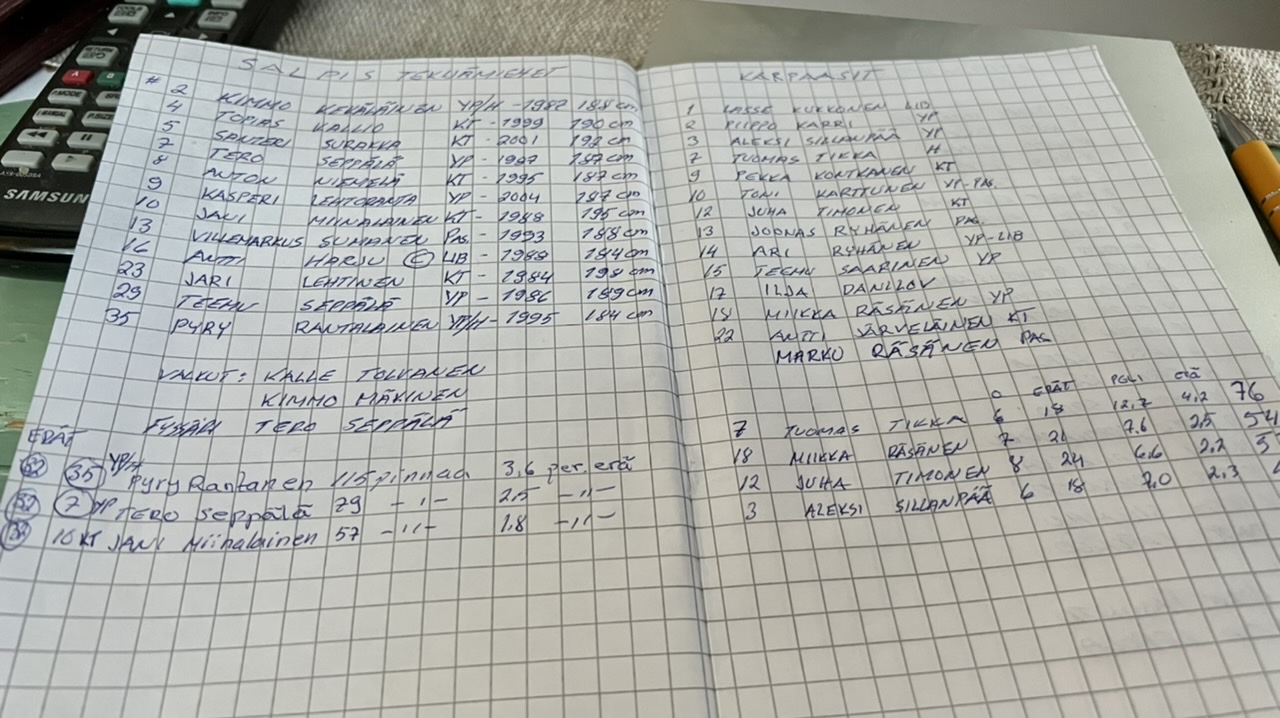 SALPIS TEKIJÄMIEHET
#
2 KIMMO KEKÄLÄINEN YP/H -1982 188 cm
4 TOPIAS KALLIO KT - 1999 190 cm
5 SANTERI SURAKKA KT - 2001 192 cm
7 TERO SEPPÄLÄ YP - 187 cm
8 ANTON NIEMELÄ KT - 1995 187 cm
9 KASPERI LEHTORANTA YP - 2004 187 cm
10 JANI MIINALAINEN KT - 1988 195 cm
13 VILLEMARKUS SUMANEN PAS. - 1993 188 cm
16 ANTTI HARJU C LIB - 1988 184 cm
23 JARI LEHTINEN KT - 1984 198 cm
29 TEEMU SEPPÄLÄ YP - 1986 189 cm
35 PYRY RANTALAINEN YP/H - 1995 184 cm
VALKUT: KALLE TOLVANEN
KIMMO MÄKINEN
FYSSARI TERO SEPPÄLÄ
ERÄT
35 YP/H Pyry Rantanen 115 pinnaa 3,6 per. erä
7 YP TERO Seppälä 79 -"- 2,5 -"-
10 KT JANI Miinalainen 57 -"- 1,8 -"-
KARPAASIT
1 LASSE KUKKONEN LIB
2 PIIPPO KARRI YP
3 ALEKSI SILLANPÄÄ YP
7 TUOMAS TIKKA H
9 PEKKA KONTKANEN KT
10 TONI KARTTUNEN YP-PAS.
12 JUHA TIMONEN KT
13 JOONAS RYHÄNEN PAS.
14 ARI RYHÄNEN YP-LIB
15 TEEMU SAARINEN YP
17 ILJA DANILOV
18 MIIKKA RÄSÄNEN YP
22 ANTTI JÄRVELÄINEN KT
MARKO RÄSÄNEN PAS.
O ERÄT PG/1 erä
7 TUOMAS TIKKA 6 18 12,7 4,2 76
18 MIIKKA RÄSÄNEN 7 21 7,6 2,5 54
12 JUHA TIMONEN 8 24 6,6 2,2
3 ALEKSI SILLANPÄÄ 6 18 7,0 2,3
TOOLS
INFO
RETURN
A
P.MODE
P.SIZE
SAMSUNG